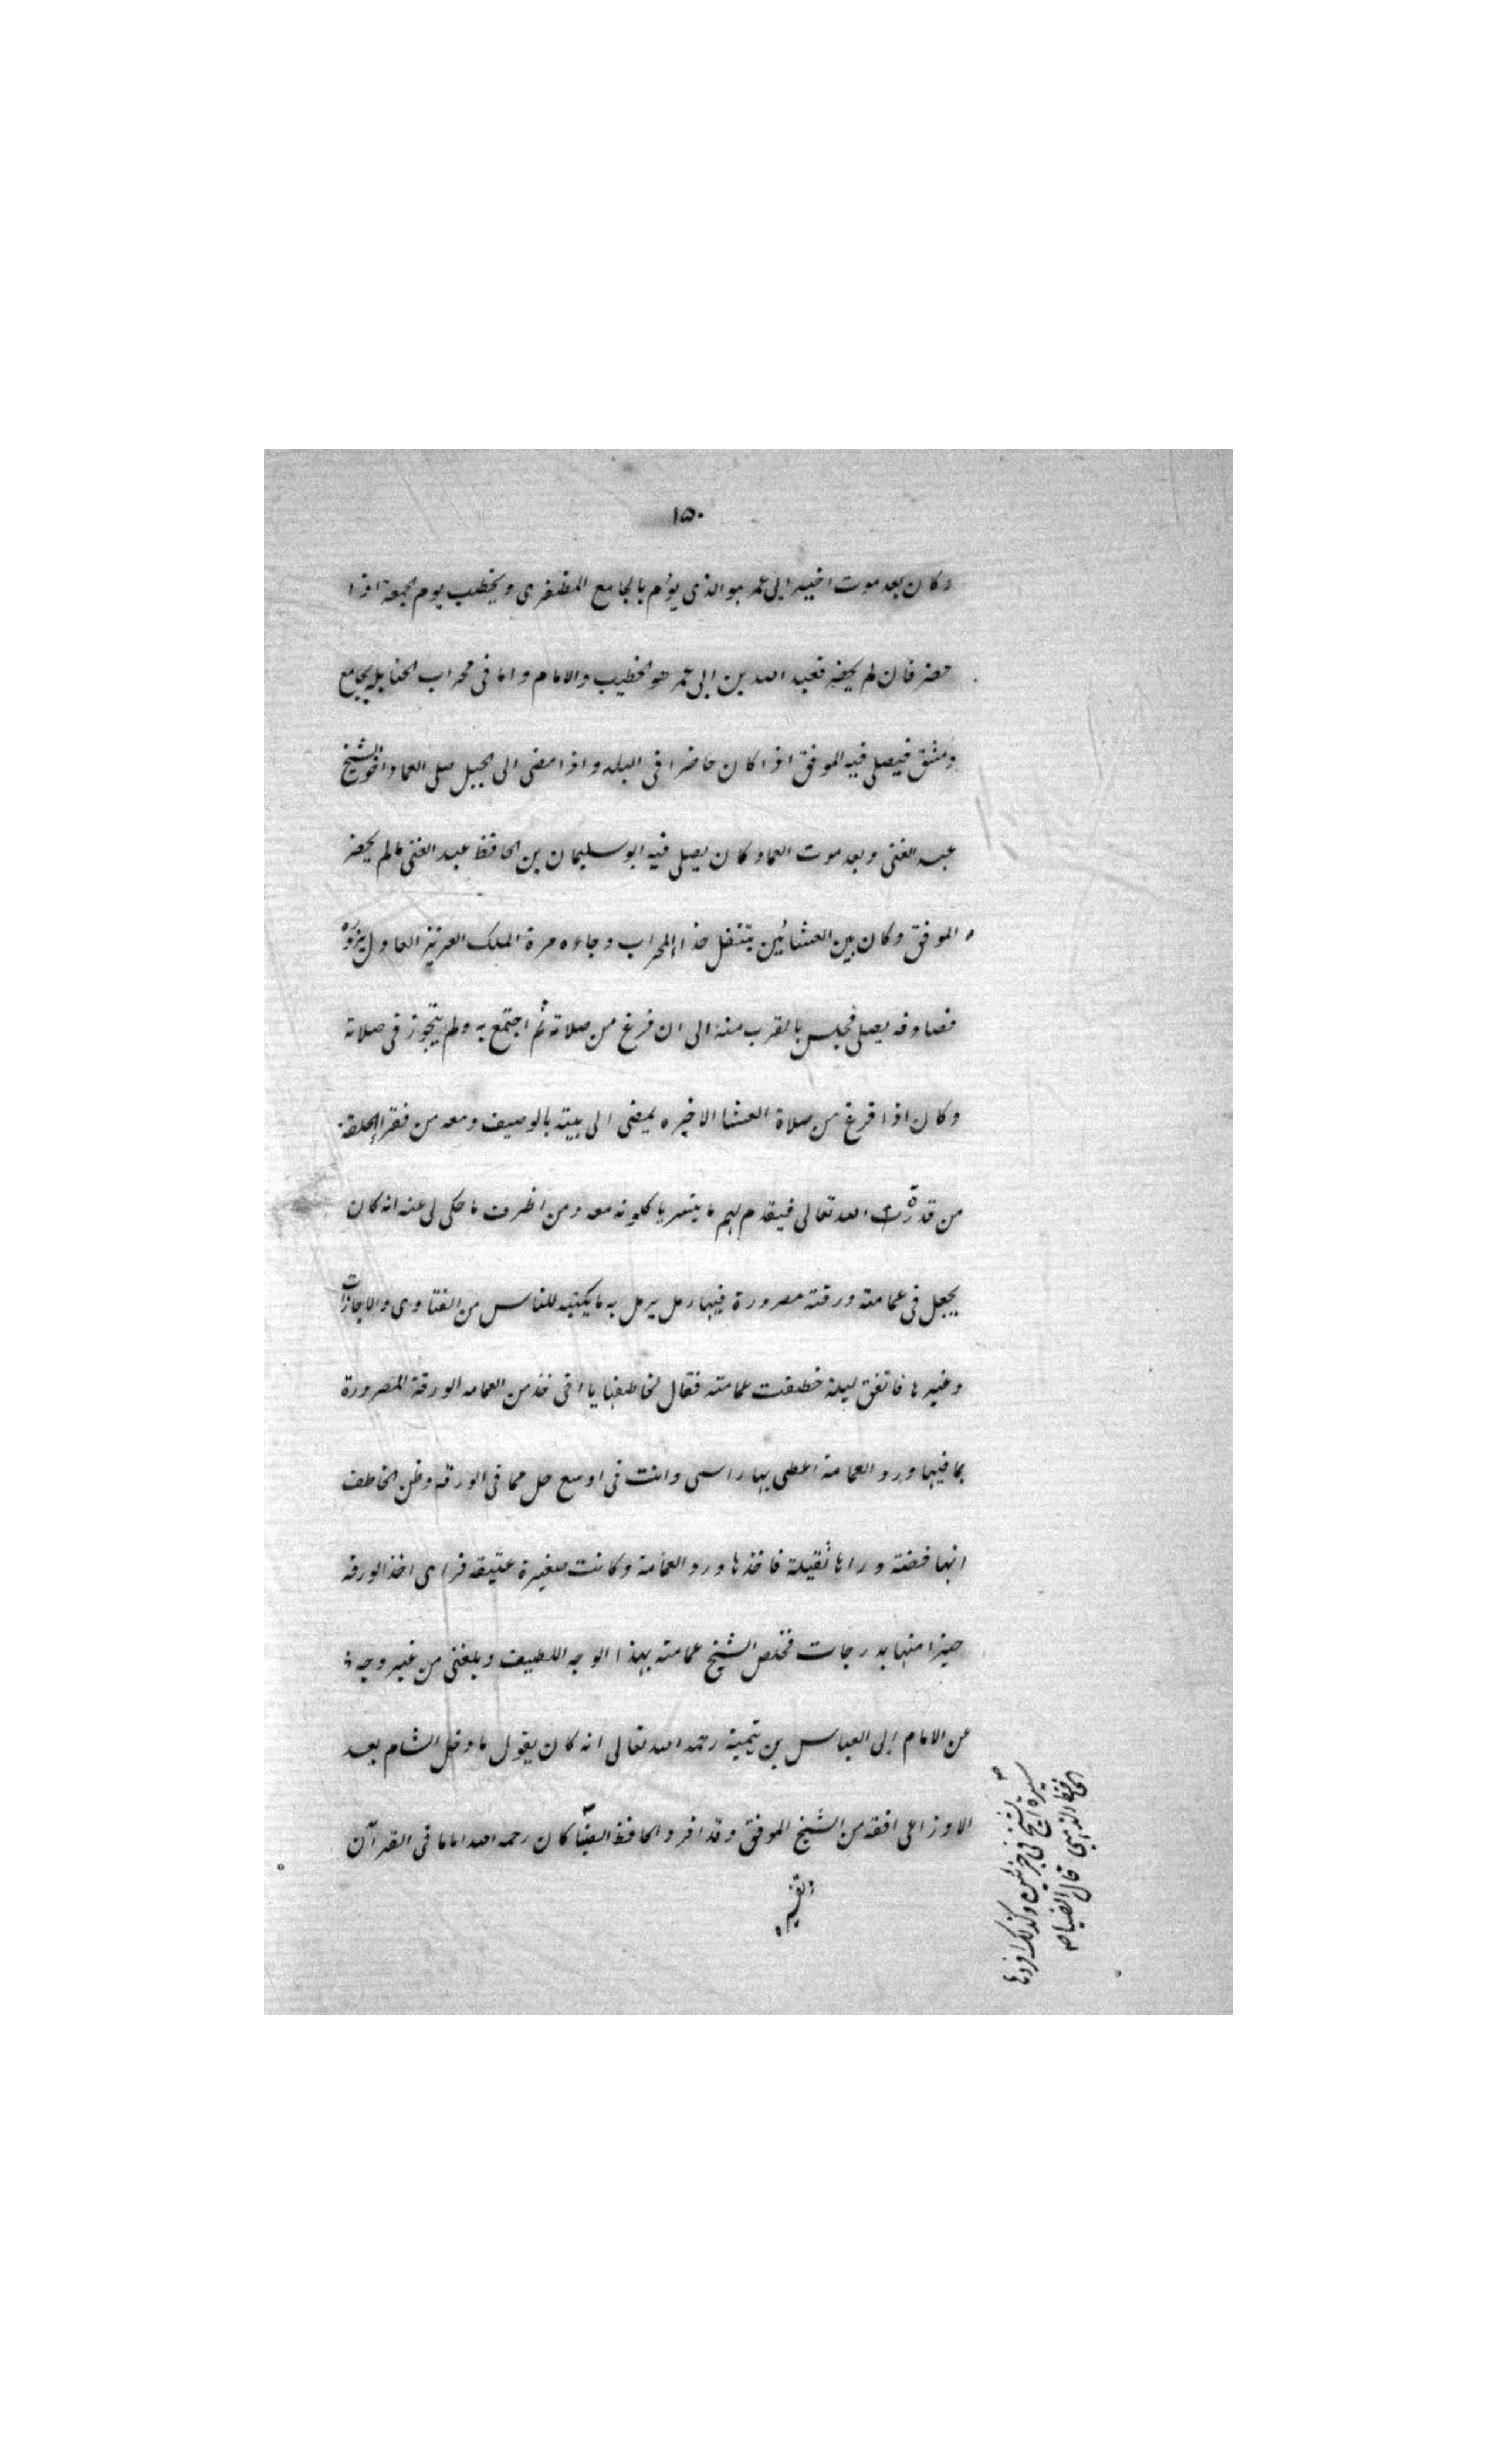 ١٥٠
وكان بعد موت اخيه ابى عمر هو الذى يؤم بالجامع المظفرى ويخطب يوم الجمعة اذا
حضر فان لم يحضر فعبد الله بن ابى عمر هو الخطيب والامام واما فى محراب الحنابلة بجامع
دمشق فيصلى فيه الموفق اذا كان حاضرا فى البلد واذا مضى الى الجبل صلى العماد اخو الشيخ
عبد الغنى وبعد موت العماد كان يصلى فيه ابو سليمان بن الحافظ عبد الغنى مالم يحضر
الموفق وكان بين العشائين يتنفل حذاء المحراب وجاءه مرة الملك العزيز العادل يزوره
فصادفه يصلى فجلس بالقرب منه الى ان فرغ من صلاته ثم اجتمع به ولم يتجوز فى صلاته
وكان اذا فرغ من صلاة العشا الاخيره يمضى الى بيته بالرصيف ومعه من فقراء الحلقة
من قدره الله تعالى فيقدم لهم ما يتسر ياكلونه معه ومن اظرف ما حكى لى عنه انه كان
يجعل فى عمامته ورقته مصرورة فيها رمل يرمل به ما يكتبه للناس من الفتاوى والاجازات
وغيرها فاتفق ليلة خطفت عمامته فقال لخاطفها يا اخى خذ من العمامه الورقة المصرورة
بما فيها ورد العمامة اغطى بها راسى وانت فى اوسع حل مما فى الورقه وظن الخاطف
انها فضة وراها ثقيلة فاخذها ورد العمامة وكانت صغيرة عتيقه فراى اخذ الورقه
خيرا منها بدرجات فخلص الشيخ عمامته بهذا الوجه اللطيف وبلغنى من غير وجه
عن الامام ابى العباس بن تيمية رحمه الله تعالى انه كان يقول ما دخل الشام بعد
الاوزاعى افقه من الشيخ الموفق وقد افرد الحافظ الضيا كان رحمه الله اماما فى القرآن
وتفسيره
سيرة الشيخ فى جزئين وكذلك افردها
الحافظ الذهبى قال الضيا